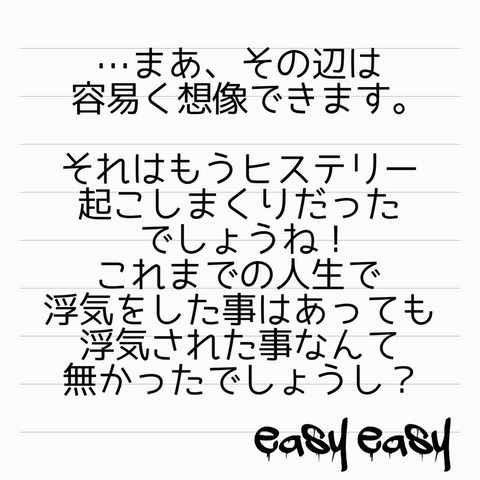 …まあ、その辺は
容易く想像できます。
それはもうヒステリー
起こしまくりだった
でしょうね！
これまでの人生で
浮気をした事はあっても
浮気された事なんて
無かったでしょうし？
easy easy